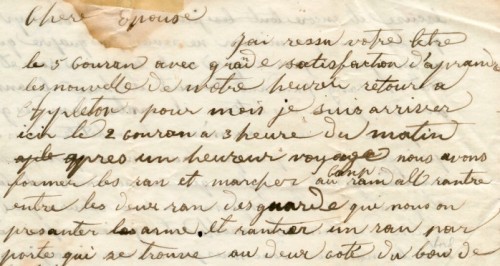 Cher Epousé
Jai ressu votre letre
le 5 Couran avec grade satisfaction daprandre
les nouvelle de votre heureu retour a
Appleton pour moi je suis arriver
icit le 2 couran a 3 heure du matin
apres un heureux voyage nous avons
former les ran et marcher au Camp ramdall rantre
entre les deux ran des guarde qui nous on
presanter les arme. et rantrer un ran par
porte qui se trouve au deux coté du bou de